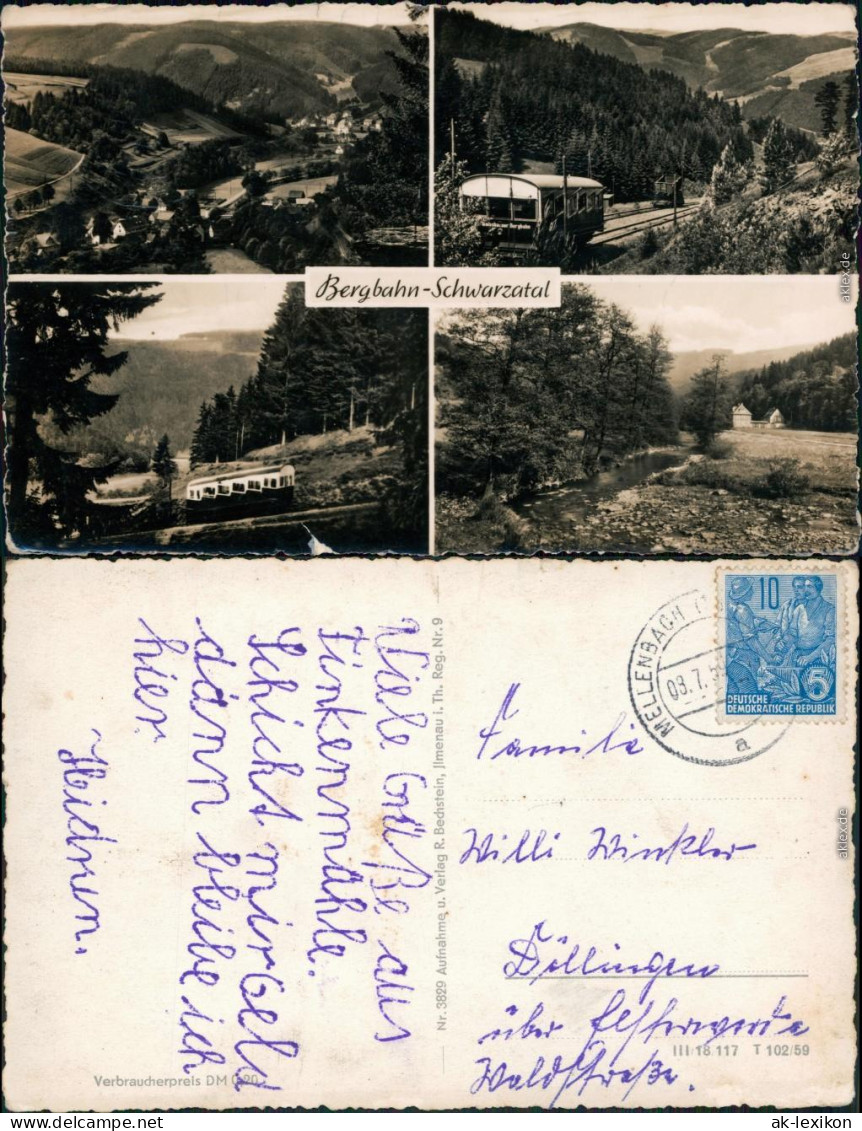 Bergbahn-Schwarzatal
aklex.de
Viele Grüße aus
Finkenmühle.
Schickt mir Geld
dann bleibe ich
hier.
Heidnen.
Nr. 3829 Aufnahme u. Verlag R. Bechstein, Jlmenau i. Th. Reg. Nr. 9
Verbraucherpreis DM 0,20
MELLENBACH
08.7.5
a
10
5
DEUTSCHE
DEMOKRATISCHE REPUBLIK
Familie
Willi Winkler
Döllingen
über Elsterwerda
Waldstraße.
III 18 117 T 102/59
aklex.de
www.ak-ansichtskarten.de
ak-lexikon